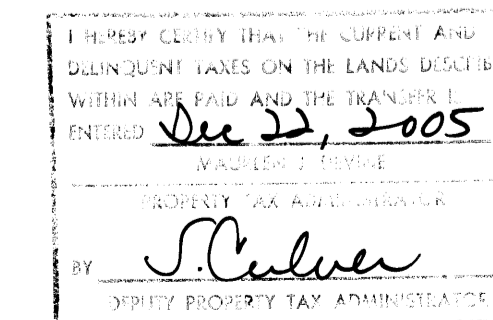 I HEREBY CERTIFY THAT THE CURRENT AND
DELINQUENT TAXES ON THE LANDS DESCRIB
WITHIN ARE PAID AND THE TRANSFER I
ENTERED Dec 22, 2005
MAUREEN J. DEVINE
PROPERTY TAX ADMINISTRATOR
BY S. Culver
DEPUTY PROPERTY TAX ADMINISTRATOR